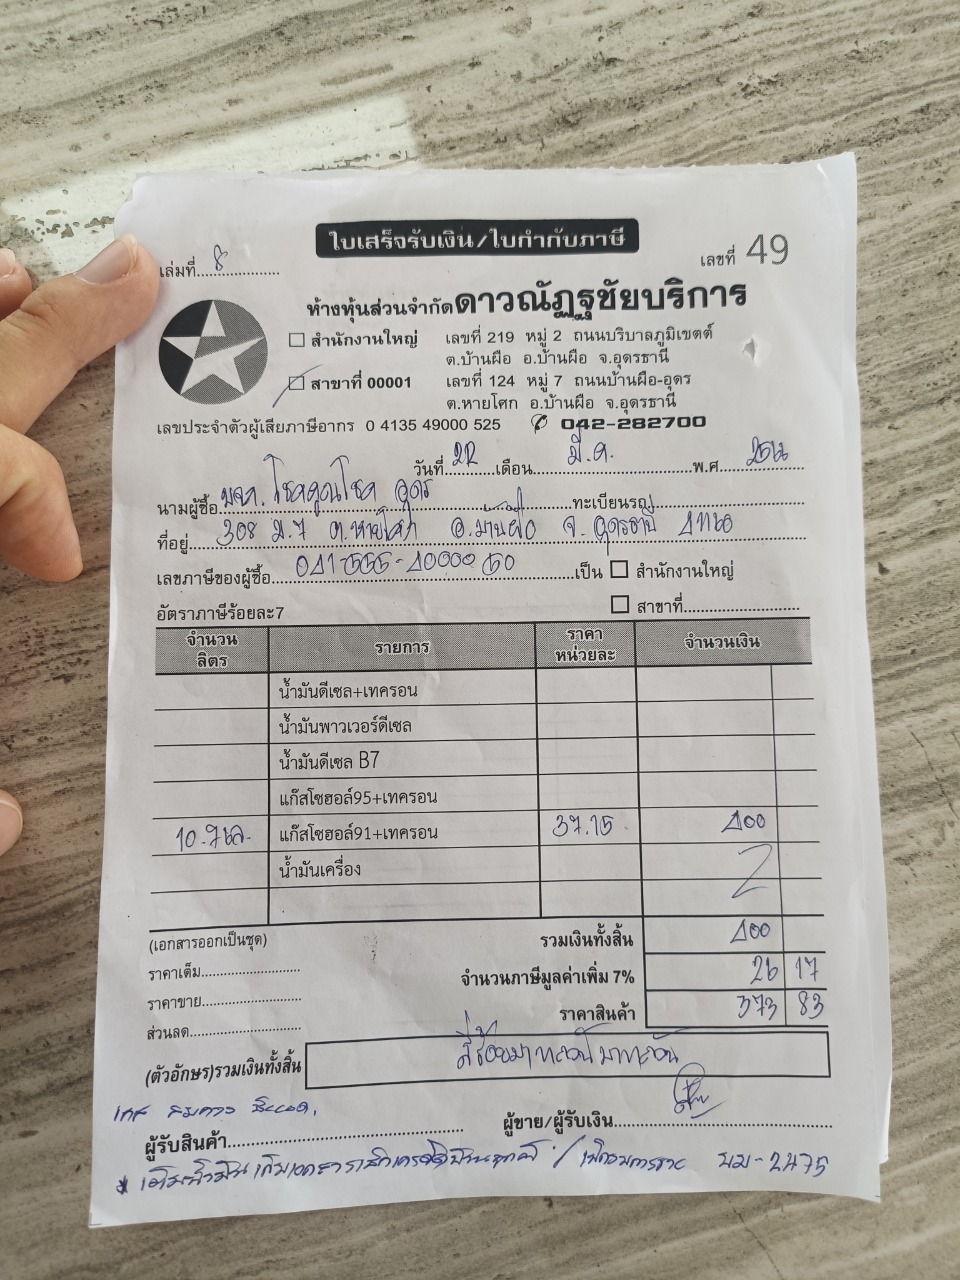 ใบเสร็จรับเงิน/ใบกำกับภาษี
เล่มที่ 8
เลขที่ 49
ห้างหุ้นส่วนจำกัดดาวณัฏฐชัยบริการ
สำนักงานใหญ่ เลขที่ 219 หมู่ 2 ถนนบริบาลภูมิเขตต์
ต.บ้านผือ อ.บ้านผือ จ.อุดรธานี
สาขาที่ 00001 เลขที่ 124 หมู่ 7 ถนนบ้านผือ-อุดร
ต.หายโศก อ.บ้านผือ จ.อุดรธานี
เลขประจำตัวผู้เสียภาษีอากร 0 4135 49000 525 042-282700
วันที่ 22 เดือน มี.ค. พ.ศ.
นามผู้ซื้อ บจก. โชคคูณโชค อุดร ทะเบียนรถ
ที่อยู่ 308 ม.7 ต.หายโศก อ.บ้านผือ จ.อุดรธานี 41160
เลขภาษีของผู้ซื้อ เป็น สำนักงานใหญ่
อัตราภาษีร้อยละ7 สาขาที่
จำนวนลิตร รายการ ราคาหน่วยละ จำนวนเงิน
น้ำมันดีเซล+เทครอน
น้ำมันพาวเวอร์ดีเซล
น้ำมันดีเซล B7
แก๊สโซฮอล์95+เทครอน
แก๊สโซฮอล์91+เทครอน 37.15 400
น้ำมันเครื่อง
(เอกสารออกเป็นชุด) รวมเงินทั้งสิ้น 400
ราคาเต็ม จำนวนภาษีมูลค่าเพิ่ม 7% 26 17
ราคาขาย ราคาสินค้า 373 83
ส่วนลด
(ตัวอักษร)รวมเงินทั้งสิ้น สี่ร้อยบาทถ้วน
ผู้รับสินค้า ผู้ขาย/ผู้รับเงิน
2475